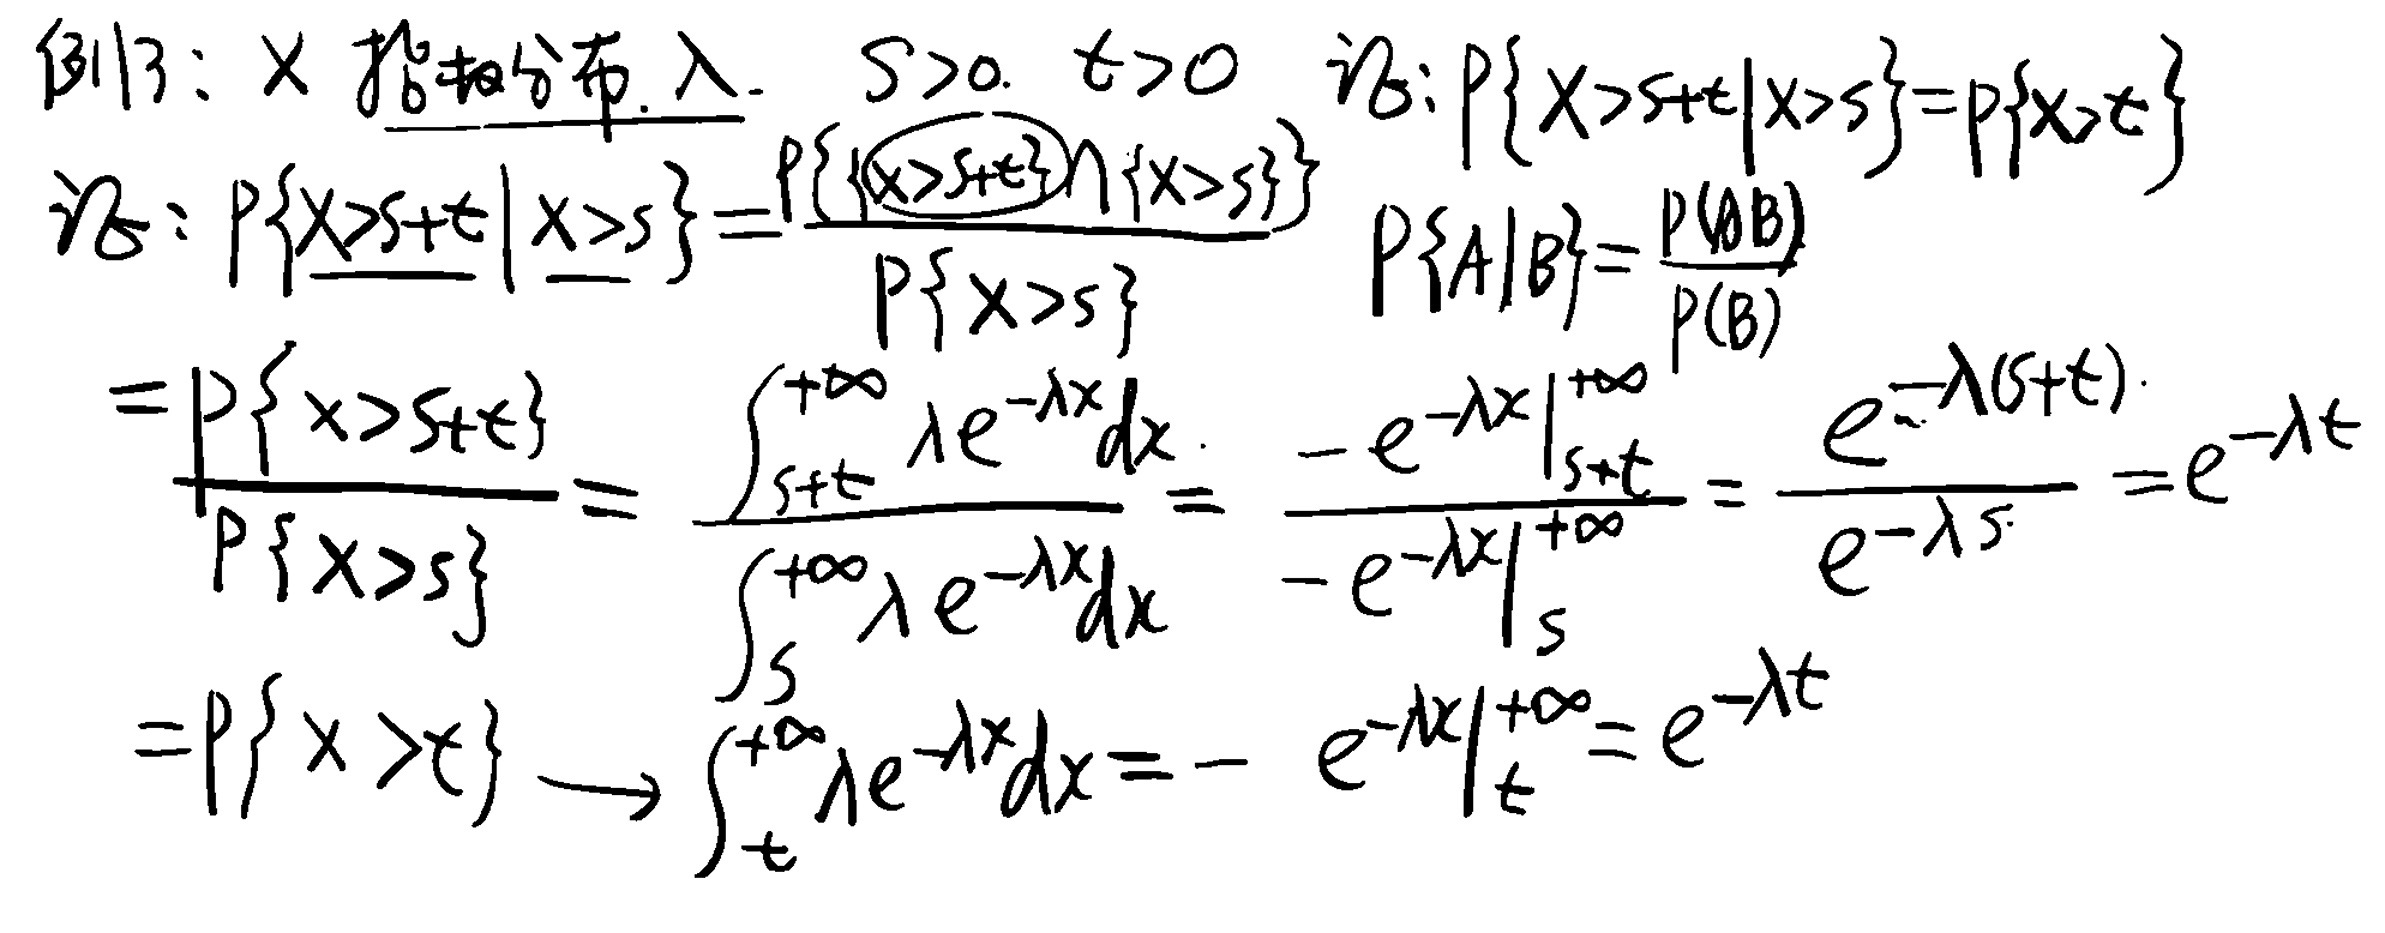 例13: X 指数分布. λ. S>0. t>0 证: P{X>s+t|X>s}=P{X>t}
证: P{X>s+t|X>s}=P{{X>s+t}∩{X>s}}/P{X>s} P{A|B}=P(AB)/P(B)
=P{X>s+t}/P{X>s}=∫_{s+t}^{+∞} λe^{-λx}dx/∫_{s}^{+∞} λe^{-λx}dx=-e^{-λx}|_{s+t}^{+∞}/-e^{-λx}|_{s}^{+∞}=e^{-λ(s+t)}/e^{-λs}=e^{-λt}
=P{X>t}→∫_{t}^{+∞} λe^{-λx}dx=-e^{-λx}|_{t}^{+∞}=e^{-λt}